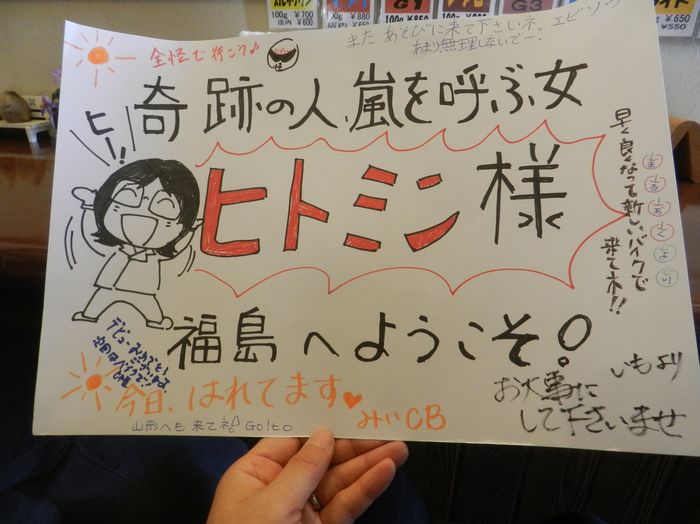 100g ¥700
店内 ¥600
100g ¥880
G1
100g ¥850
G3
¥650
¥550
全怪で行こう♪
また、あそびに来て下さいネ。エビゾウ
あまり無理しないでー。
奇跡の人、嵐を呼ぶ女
ヒー!!
ヒトミン様
早く良くなって新しいバイクで
来てネ!!
まるおくより
福島へようこそ!
デビューおめでとう
次回はバイクで!
今日、はれてます♥
みぃCB
いもより
お大事に
して下さいませ
山形へも来てネ Go!to